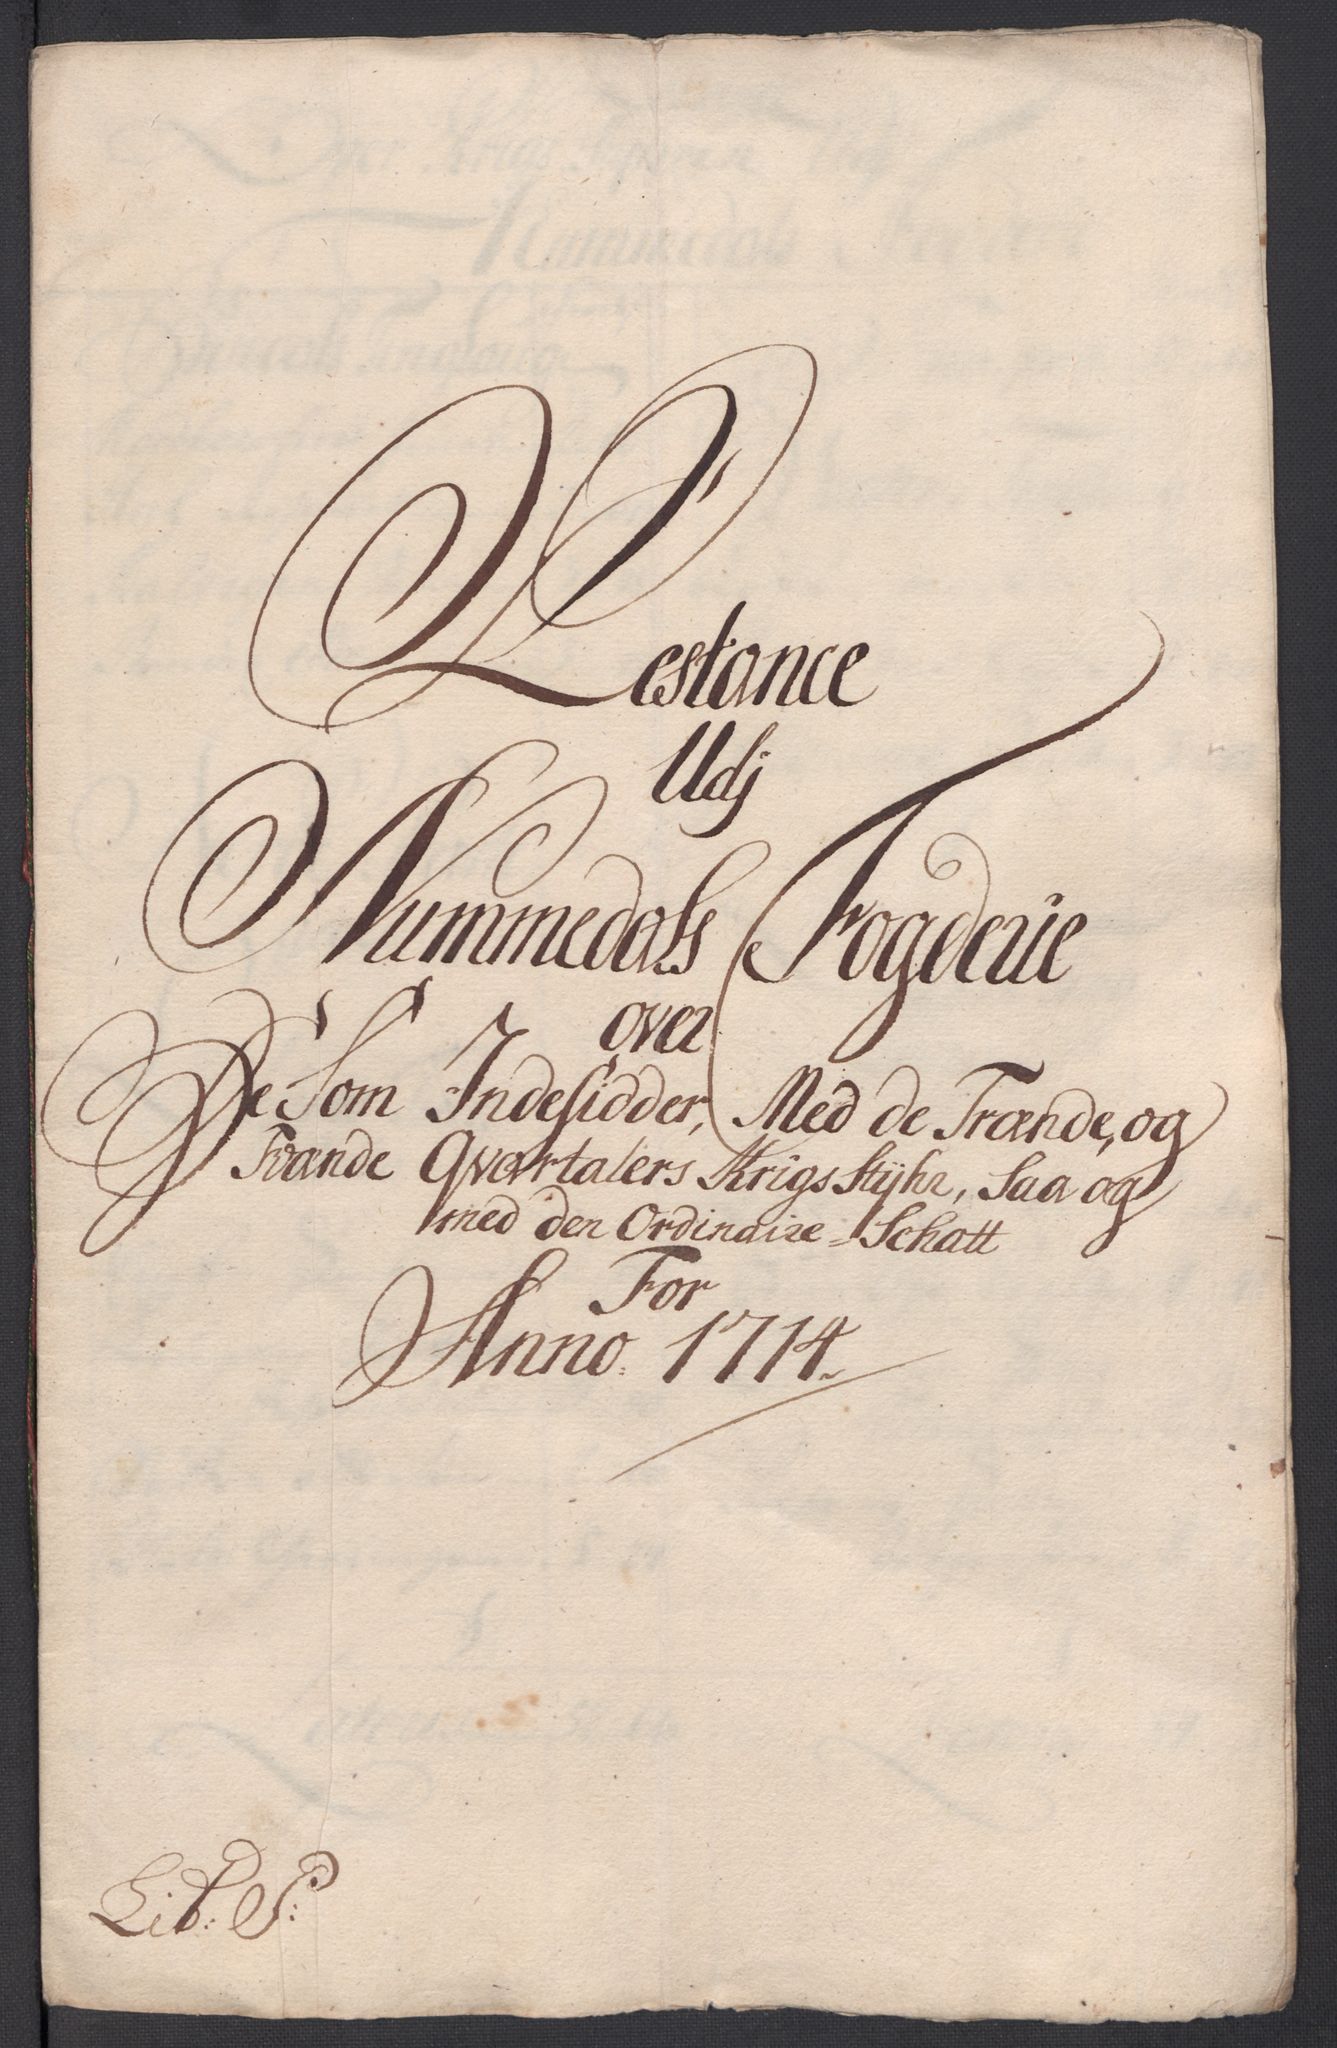 Restance
Udj
Nummedals Fogderie
over
De Som Indesidder, Med de Trænde, og
Fræende Qvartalers Krigs Styhr, Saa og
med den Ordinaire Schatt
For
Anno. 1714.
Lit: S: